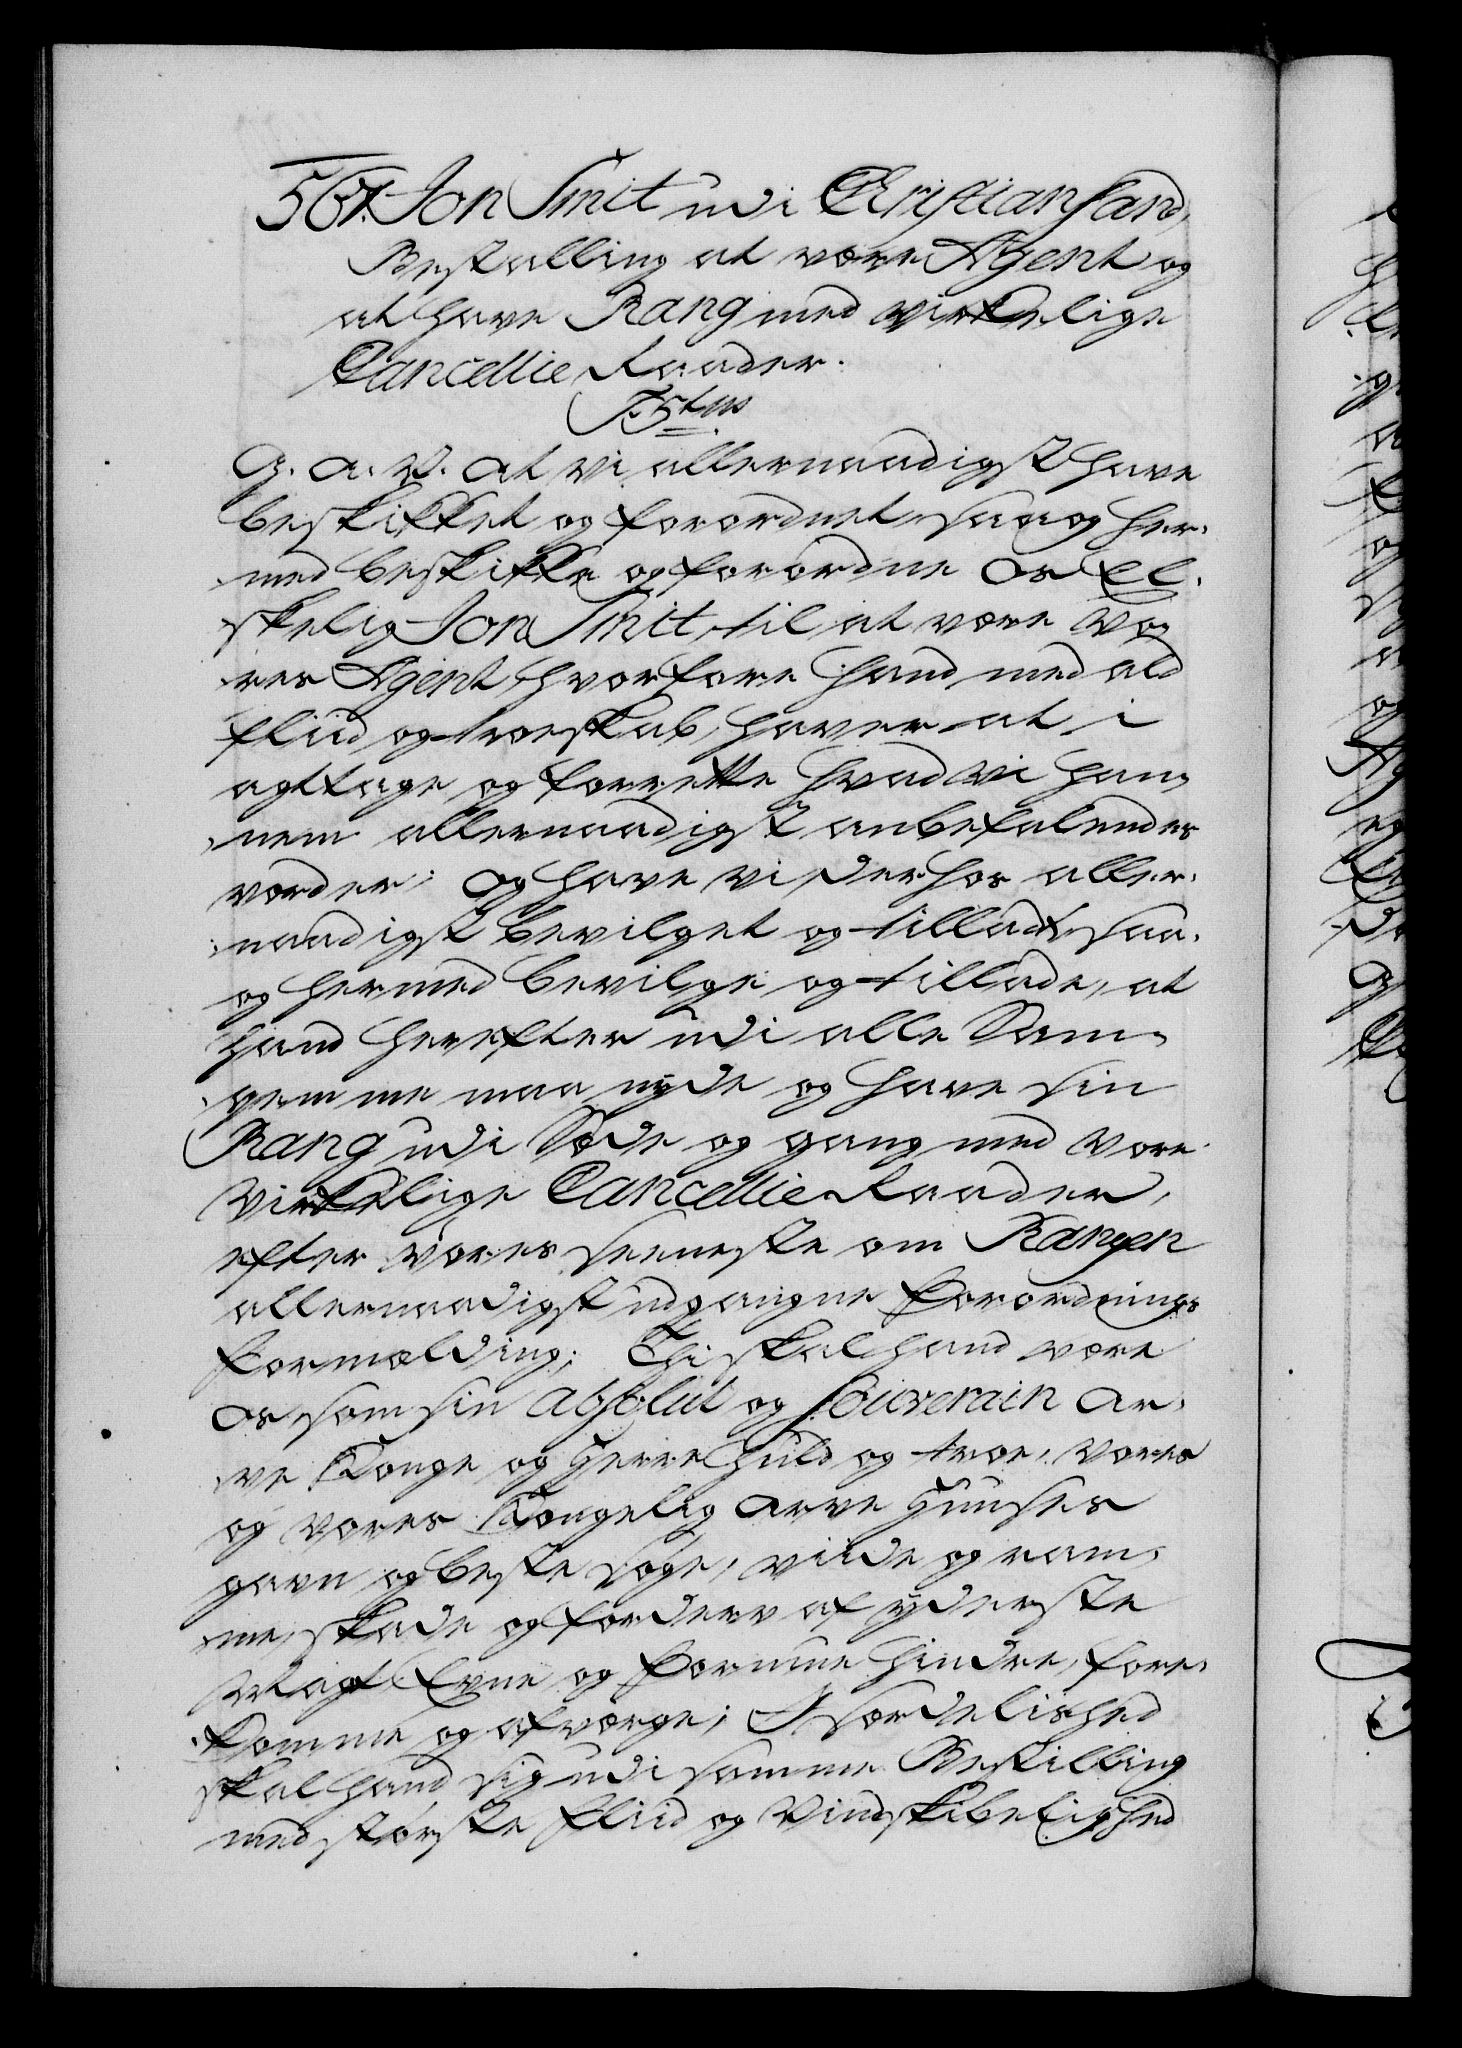 567. Jon Smit udi Christiansand,
Bestalling at være Agent og
at have Rang med virkelige
Cancellie Raader.
F. 5tus
G. A. V. At vi allernaadigst have
beskikket og forordnet, saa og her-
med beskikke og forordne Os El-
skelig Jon Smit, til at være Vo-
res Agent, hvorfore hand med ald
fliid og troeskab, haver at i
agttage og forrette hvad vi han-
nem allernaadigst anbefalendes
vorder; Og have vi derhos aller-
naadigst bevilget og tilladt, saa-
og hermed bevilge og tillade, at
hand herefter udi alle Sam-
qvemme maa nyde og have sin
Rang udi Sæde og gang med vore
Virkelige Cancellie Raader,
efter vores seeneste om Rangen
allernaadigst udgangne Forordnings
Formælding; Thi skal hand være
Os som sin absolut og souverain Ar-
ve Konge og Herre huld og troe, vores
og vores Kongelig Arve Huuses
gavn og beste søge, viide og ram-
me, skade og forderv af yderste
Magt, Evne og Formue hindre, fore-
komme og afværge; I særdelished
skal hand sig udi samme Bestilling
med største fliid og Vindskibelighed